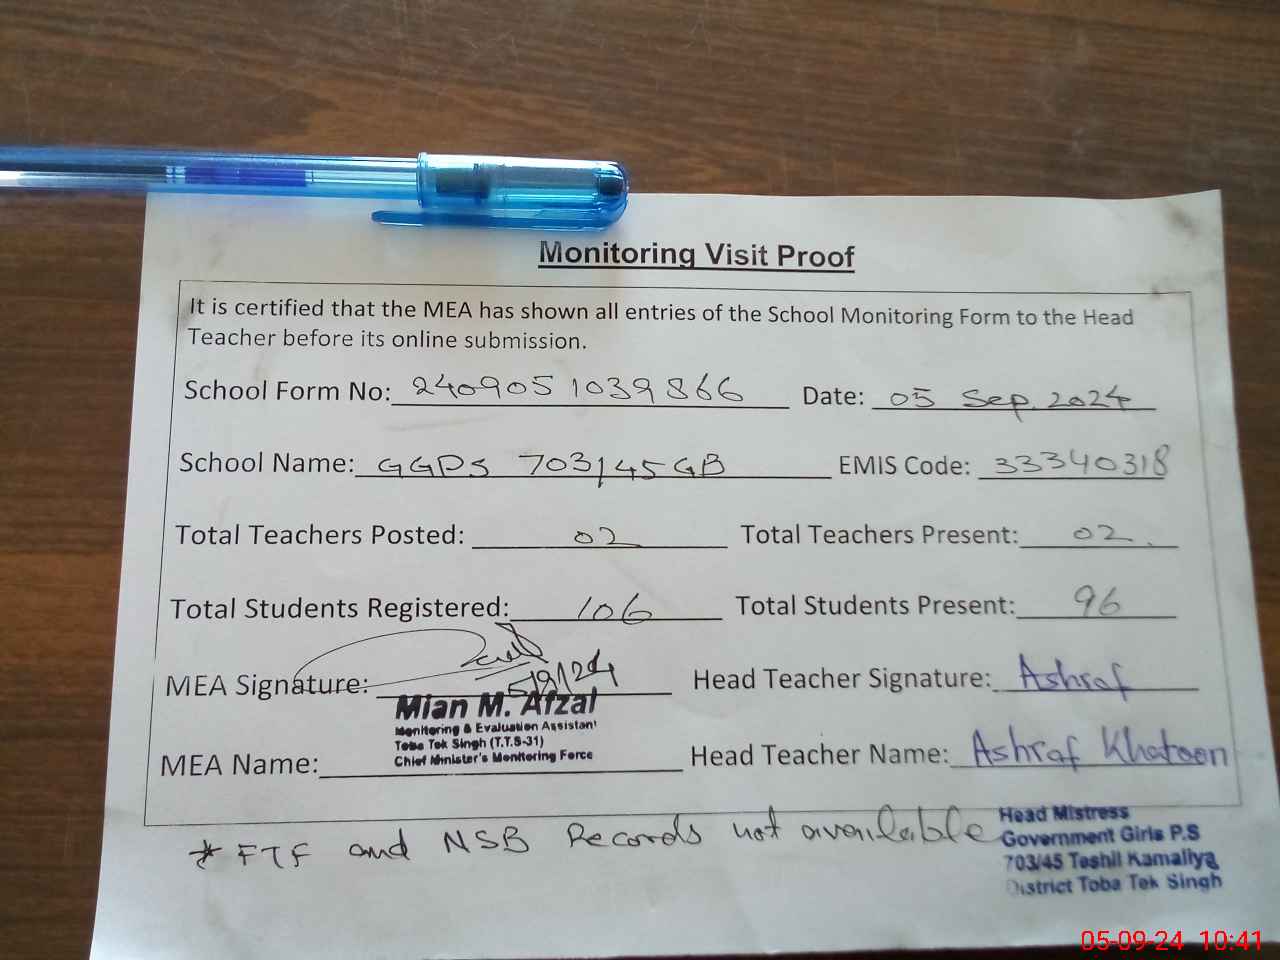 Monitoring Visit Proof
It is certified that the MEA has shown all entries of the School Monitoring Form to the Head
Teacher before its online submission.
School Form No: 2409051039866 Date: 05 Sep. 2024
School Name: GGPS 703/45GB EMIS Code: 33340318
Total Teachers Posted: 02 Total Teachers Present: 02
Total Students Registered: 106 Total Students Present: 96
MEA Signature: 5/9/24 Head Teacher Signature: Ashraf
Mian M. Afzal
Monitoring & Evaluation Assistant
Toba Tek Singh (T.T.S-31)
Chief Minister's Monitoring Force
MEA Name: Head Teacher Name: Ashraf Khatoon
* FTF and NSB Records not available
Head Mistress
Government Girls P.S
703/45 Teshil Kamaliya
District Toba Tek Singh
05-09-24 10:41